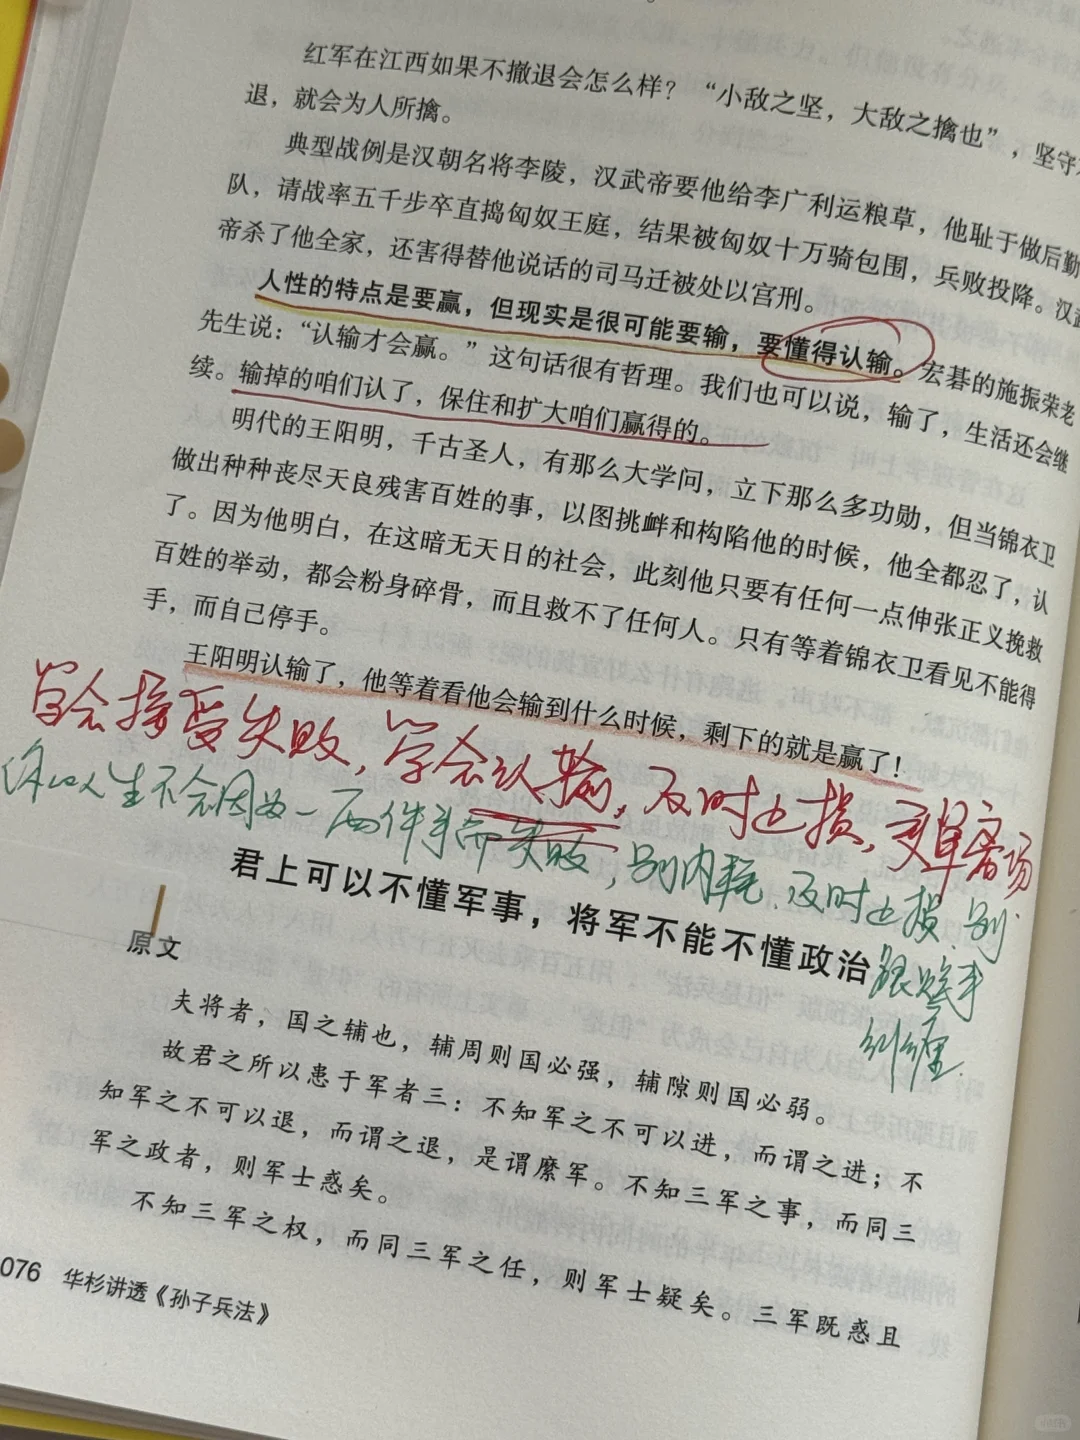 红军在江西如果不撤退会怎么样？“小敌之坚，大敌之擒也”，坚守不
退，就会为人所擒。
典型战例是汉朝名将李陵，汉武帝要他给李广利运粮草，他耻于做后勤
队，请战率五千步卒直捣匈奴王庭，结果被匈奴十万骑包围，兵败投降。汉武
帝杀了他全家，还害得替他说话的司马迁被处以宫刑。
人性的特点是要赢，但现实是很可能要输，要懂得认输。宏碁的施振荣老
先生说：“认输才会赢。”这句话很有哲理。我们也可以说，输了，生活还会继
续。输掉的咱们认了，保住和扩大咱们赢得的。
明代的王阳明，千古圣人，有那么大学问，立下那么多功勋，但当锦衣卫
做出种种丧尽天良残害百姓的事，以图挑衅和构陷他的时候，他全都忍了，认
了。因为他明白，在这暗无天日的社会，此刻他只要有任何一点伸张正义挽救
百姓的举动，都会粉身碎骨，而且救不了任何人。只有等着锦衣卫看见不能得
手，而自己停手。
王阳明认输了，他等着看他会输到什么时候，剩下的就是赢了！
学会接受失败，学会认输，及时止损，尽早离场
你的人生不会因为一两件事而失败，别内耗、及时止损、别
跟贱事
纠缠
君上可以不懂军事，将军不能不懂政治
原文
夫将者，国之辅也，辅周则国必强，辅隙则国必弱。
故君之所以患于军者三：不知军之不可以进，而谓之进；不
知军之不可以退，而谓之退，是谓縻军。不知三军之事，而同三
军之政者，则军士惑矣。
不知三军之权，而同三军之任，则军士疑矣。三军既惑且
076 华杉讲透《孙子兵法》